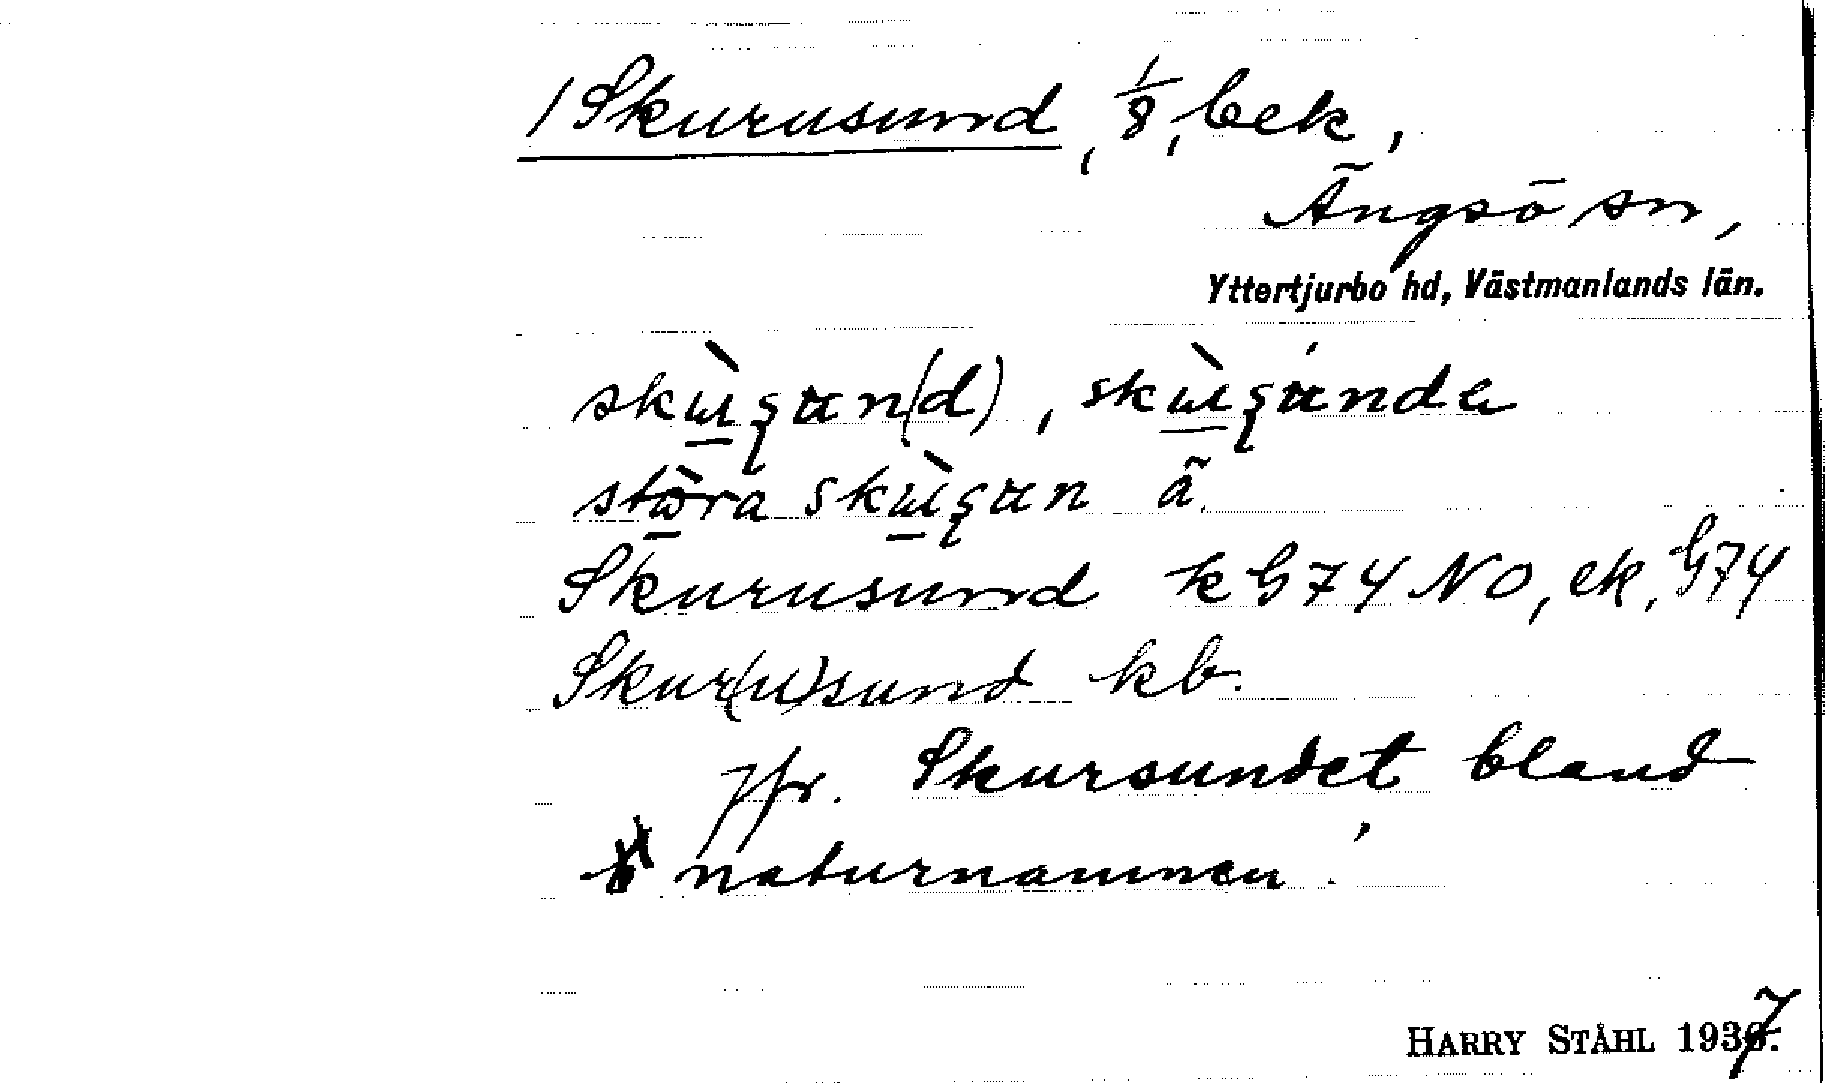 / Skurusund, 1/8, bek,
Ängsö sn,
Yttertjurbo hd, Västmanlands län.
skɯ̀ʂun(d), skɯ̀ʂúnda
stɷ̀ra skɯ̀ʂun ã
Skurusund k G74 NO, ek, G74
Skur(u)sund kb.
jfr. Skursundet bland
naturnamnen.
HARRY STÅHL 1937.